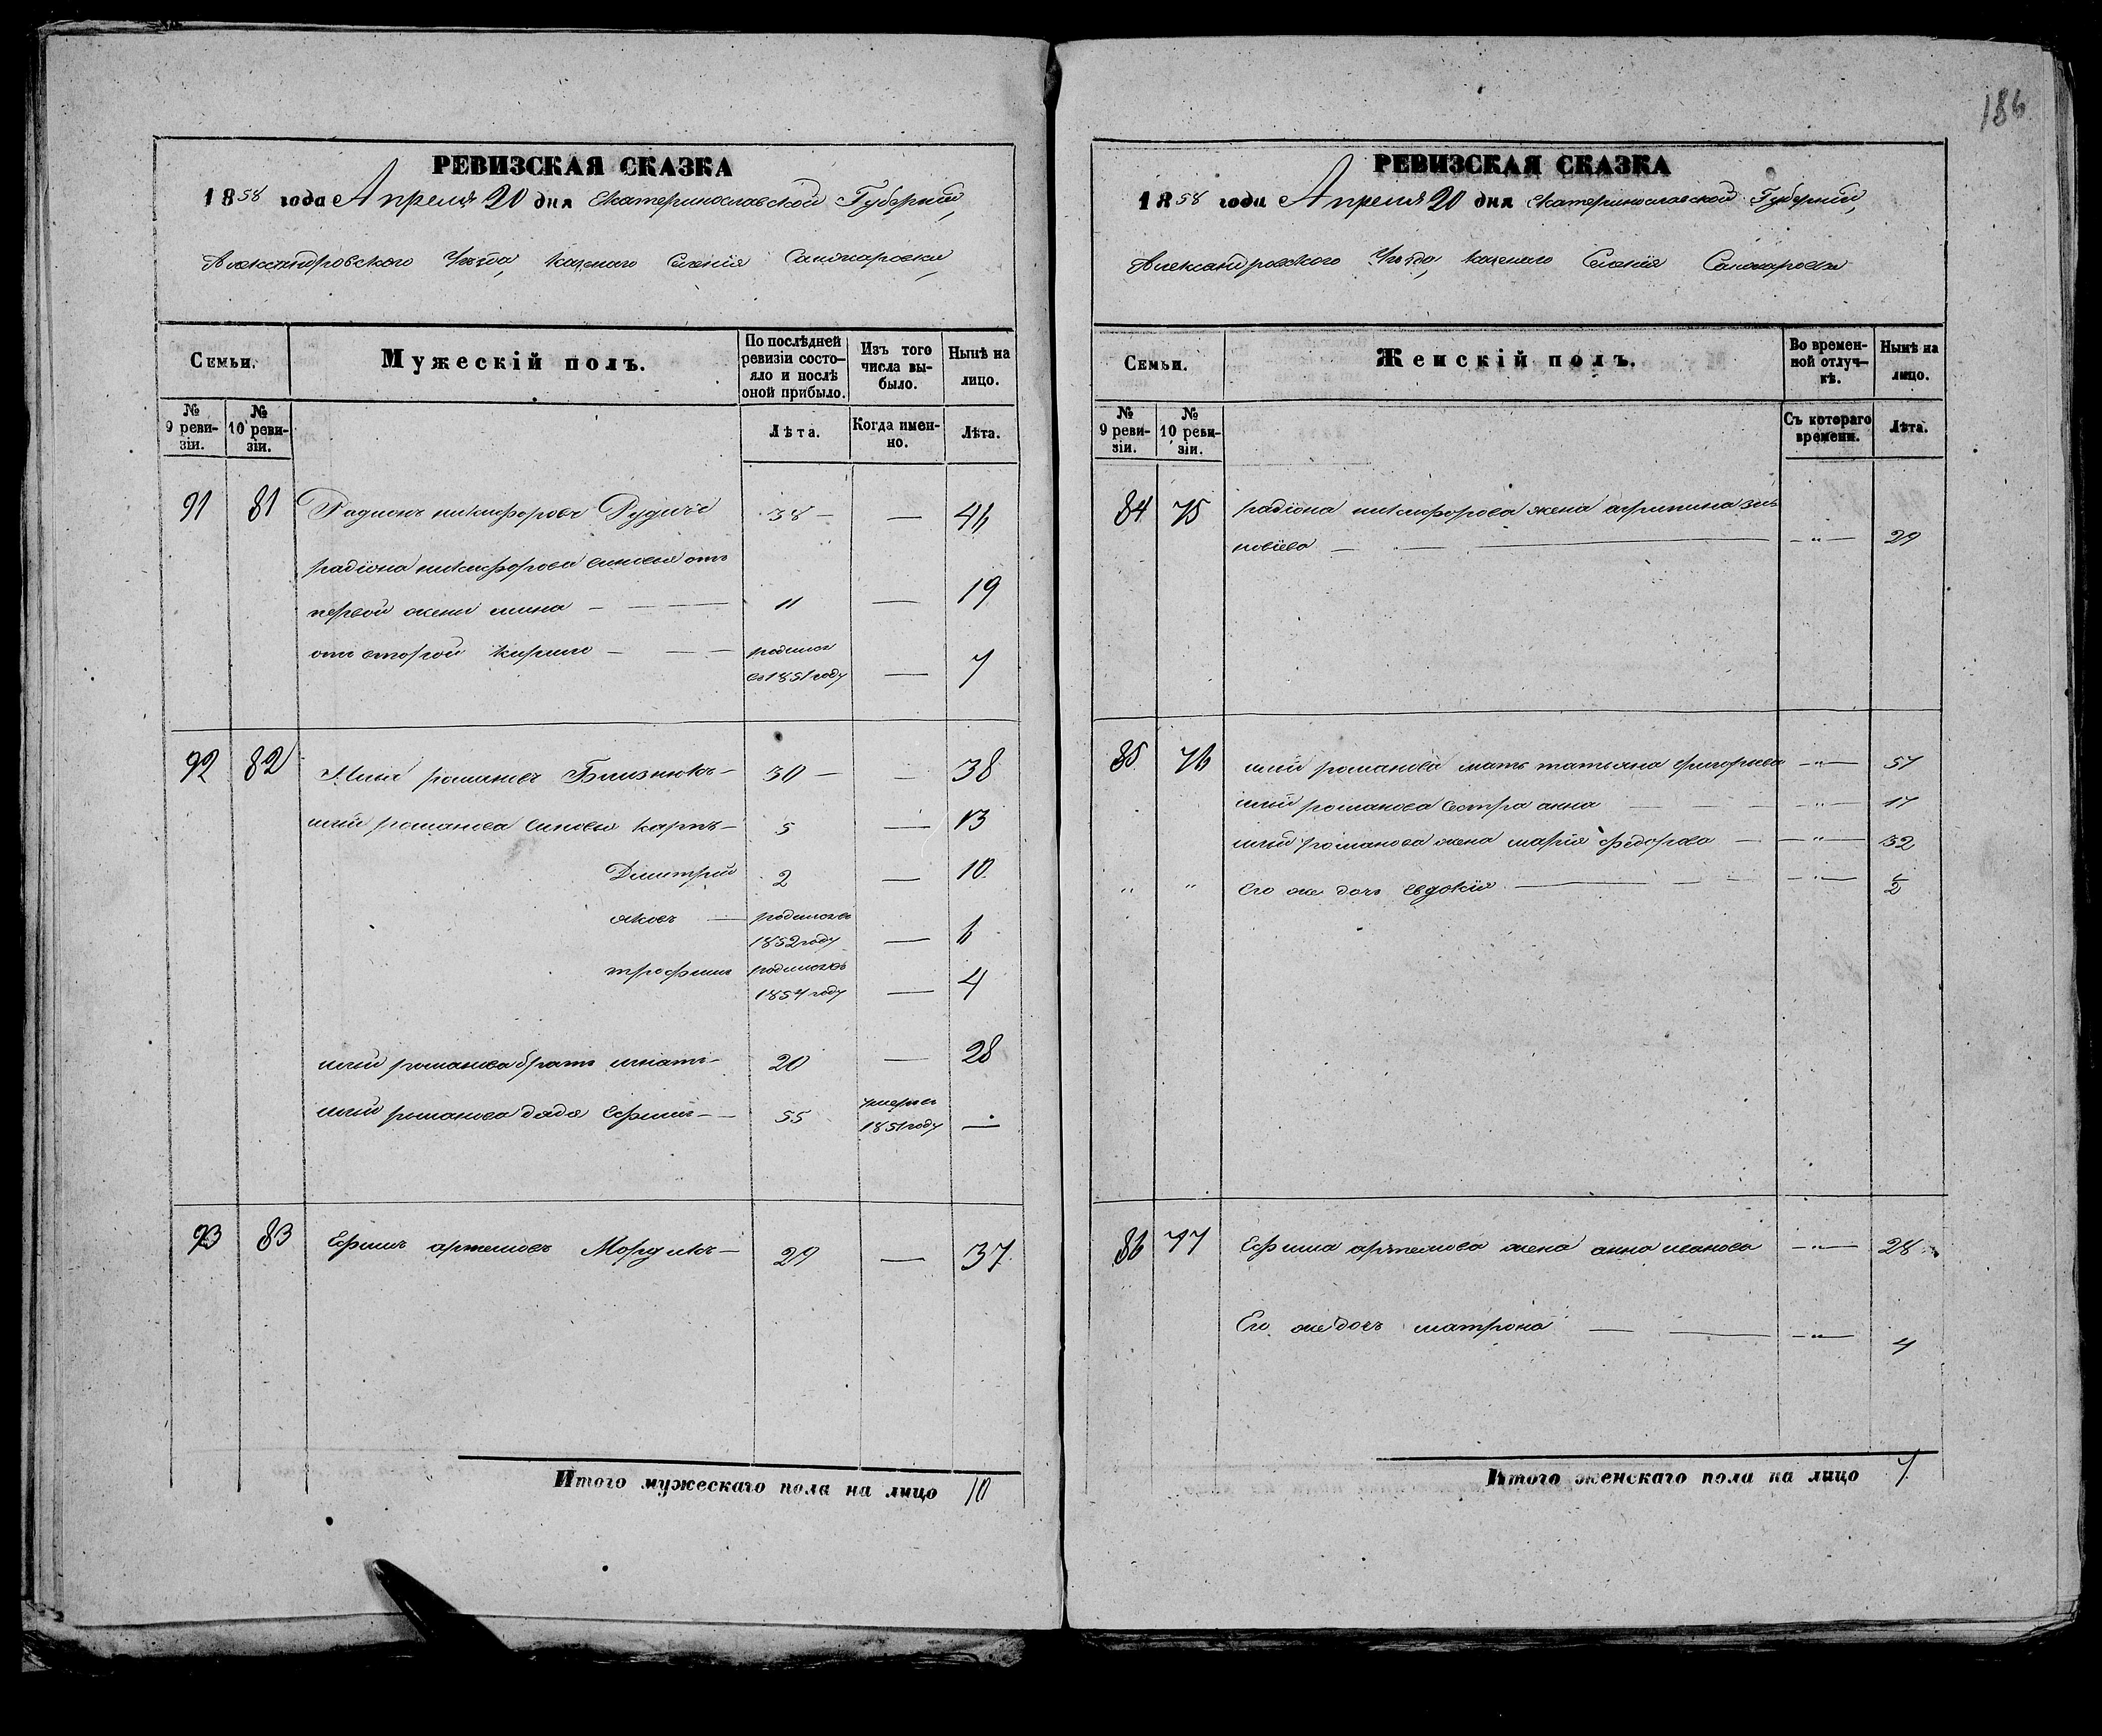 186
РЕВИЗСКАЯ СКАЗКА
1858 года Апреля 20 дня Екатеринославской Губернии,
Александровского Уезда, казенаго Селения
Семьи.
Мужескій полъ.
По послѣдней ревизіи состояло и послѣ оной прибыло.
Изъ того числа выбыло.
Нынѣ на лицо.
№ 9 ревизіи.
№ 10 ревизіи.
Лѣта.
Когда именно.
Лѣта.
91 81 Радионъ никифоровъ 38 — — 46
радіона никифорова сыновья отъ
первой жены мина — — — 11 — 19
от второй кирило — — — родился
въ 1851 году — 7
92 82 Илій романовъ Близнюкъ — 30 — — 38
илій романова сыновья карпъ — 5 — 13
Димитрий 2 — 10
яковъ — родился въ
1852 году — 6
трофимъ родился въ
1854 году — 4
илій романова братъ игнатъ — 20 — 28
илій романова дядя Ефимъ — — 55 умеръ въ
1851 году —
93 83 Ефимъ артемовъ — 29 — 37
Итого мужескаго пола на лицо 10
РЕВИЗСКАЯ СКАЗКА
1858 года Апреля 20 дня Екатеринославской Губерніи,
Александровского Уезда, казенаго Селения
Семьи.
Женскій полъ.
Во временной отлучкѣ.
Нынѣ на лицо.
№ 9 ревизіи.
№ 10 ревизіи.
Съ котораго времени.
Лѣта.
84 75 радіона никифорова жена агрипина зи-
новіева — — — — " — 29
85 76 илій романова мать татьяна григорьева — " — 57
илій романова сестра анна — — — " — 17
илій романова жена марія федорова — — " — 32
" " его же дочь евдокія — — — — " — ½
86 77 Ефима артемова жена анна иванова — " — 28
Его же дочь матрона — — — " — 4
Итого женскаго пола на лицо 7